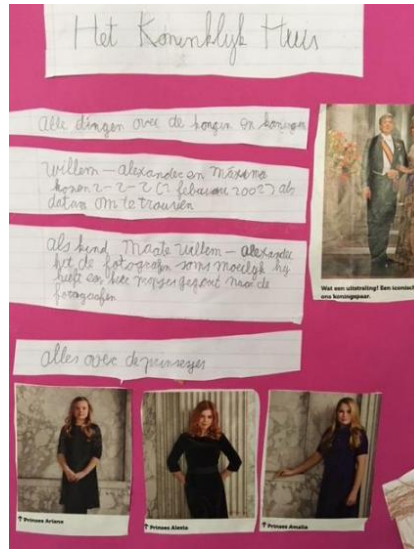 Het Koninklijk Huis
alle dingen over de kongin en koningin
willem-alexander en máxima
konen 2-2-2 (2 febuarie 2002) als
datum om te trouwen
als kind maate willem-alexander
het de fotografen soms moeilijk hij
heeft een keer propjes gegooit naar de
fotografen
Wat een uitstraling! Een iconisch
ons koningspaar.
alles over de prinsesjes
↑ Prinses Ariane
↑ Prinses Alexia
↑ Prinses Amalia